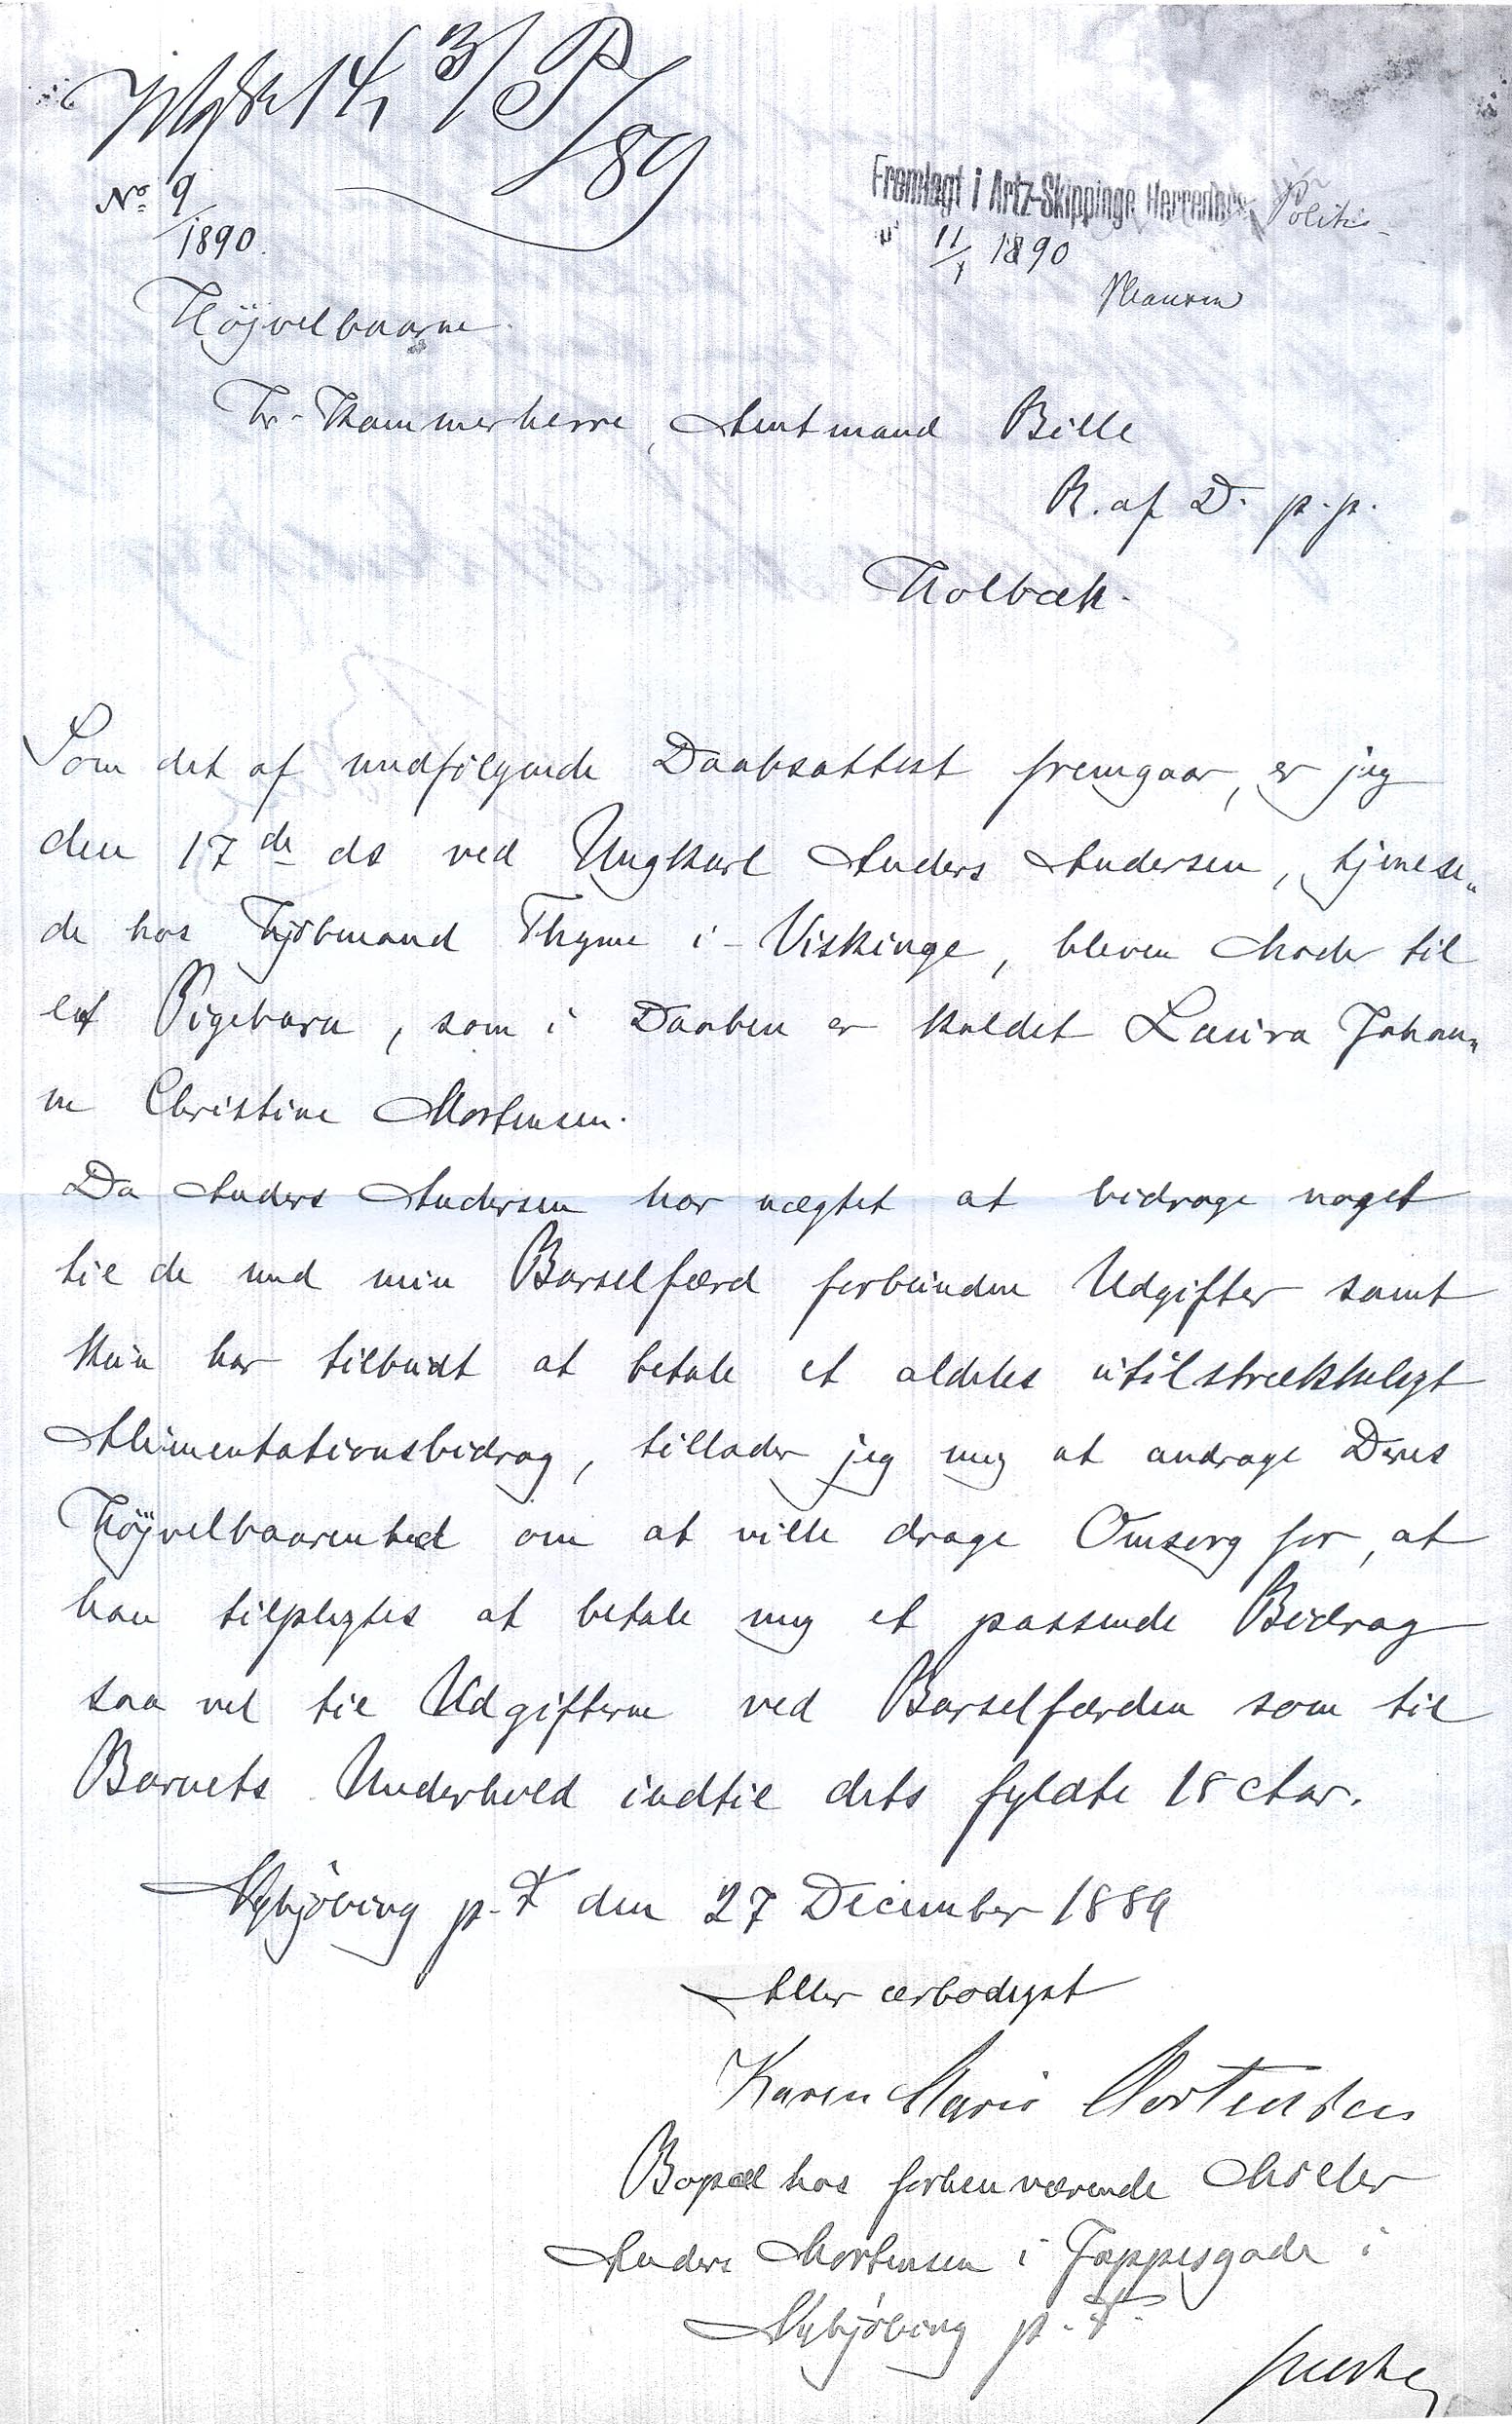 No 9
/1890.
Fremlagt i Artz-Skippinge Herreders Politi-
11/1 1890
Højvelbaarne
Hr. Kammerherre, Amtmand Bille
R. af D. p.p.
Holbæk.
Som det af medfølgende Daabsattest fremgaar, er jeg
den 17de ds ved Ungkarl Anders Andersen, tjenen„
de hos Kjøbmand Thyme i Viskinge, bleven Moder til
et Pigebarn, som i Daaben er kaldet Laura Johan„
ne Christine Mortensen.
Da Anders Andersen har nægtet at bidrage noget
til de med min Barselfærd forbundne Udgifter samt
kun har tilbudt at betale et aldeles utilstrækkeligt
Alimentationsbidrag, tillader jeg mig at andrage Deres
Højvelbaarenhed om at ville drage Omsorg for, at
han tilpligtes at betale mig et passende Bidrag
saa vel til Udgifterne ved Barselfærden som til
Barnets Underhold indtil dets fyldte 18 Aar.
Nykjøbing p. F. den 27 December 1889
Allerærbødigst
Karen Marie Mortensen
Bopæl hos forhenværende Møller
Anders Mortensen i Jappesgade i
Nykjøbing p. F.